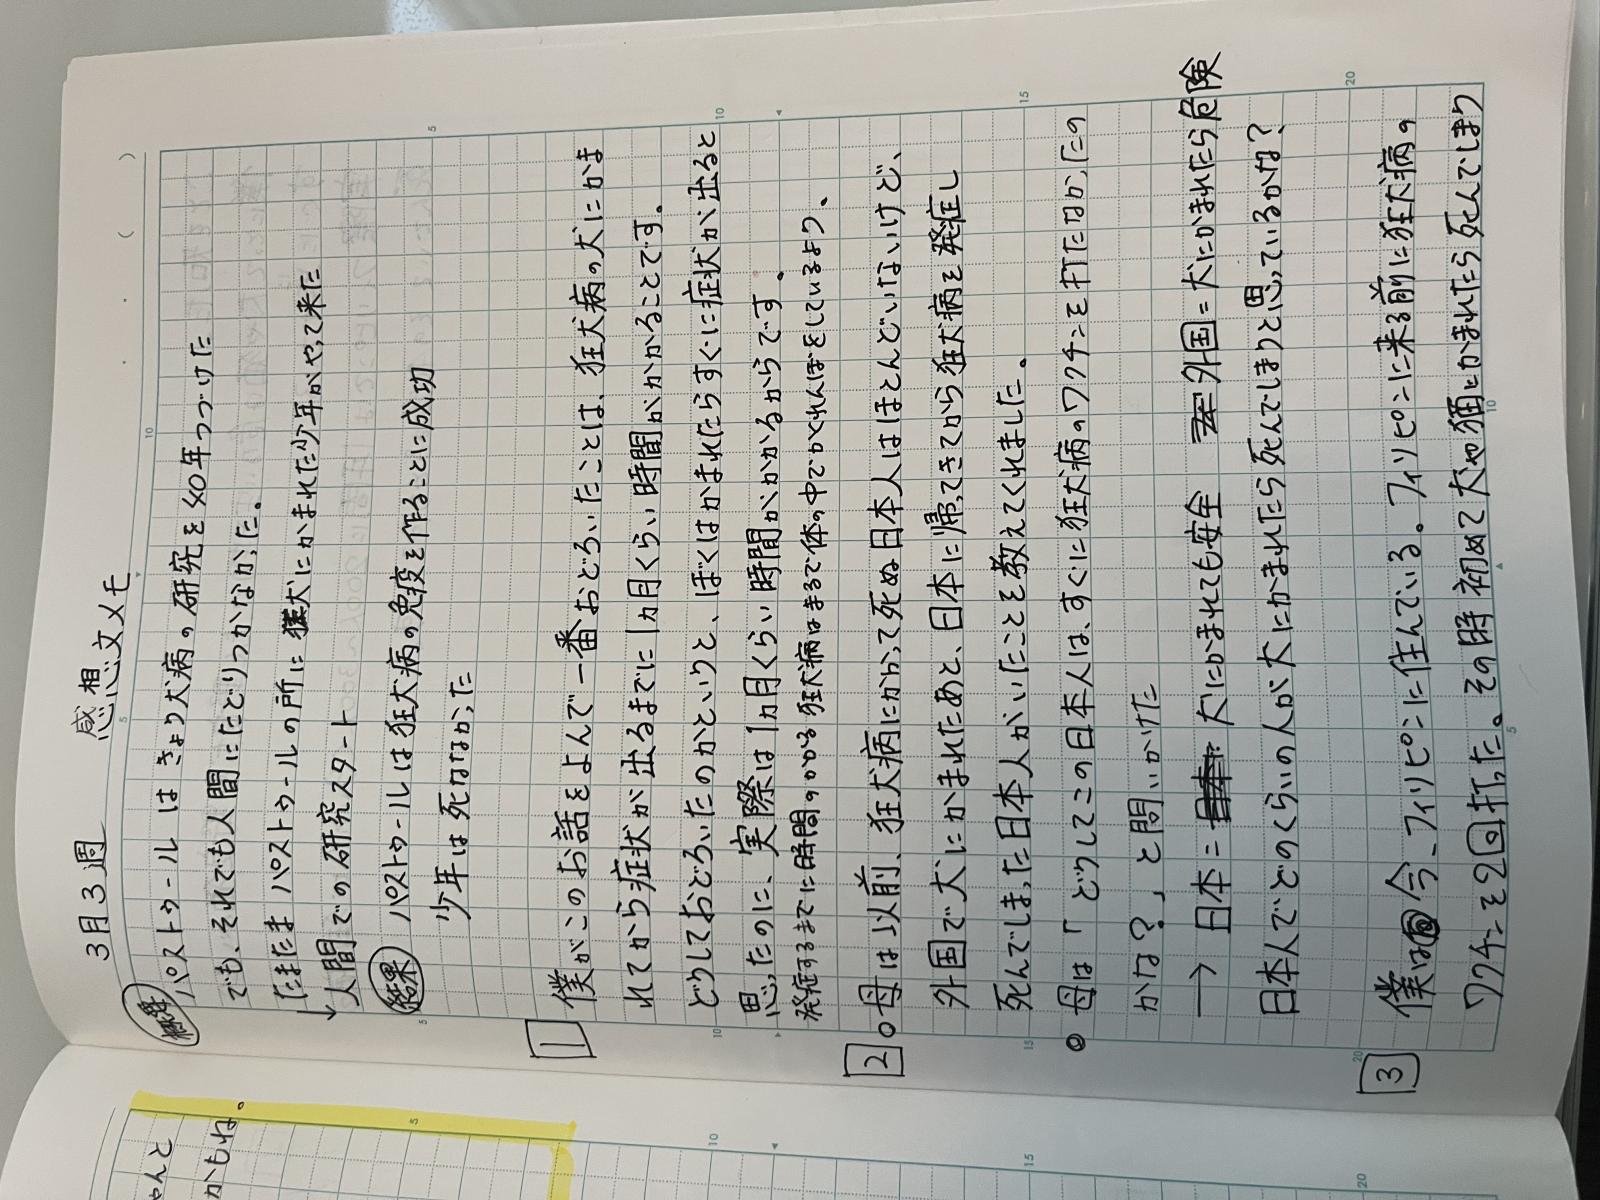 3月3週 感想文メモ
パストゥールはきょう犬病の研究を40年つづけた
でも、それでも人間にたどりつかなかった。
たまたまパストゥールの所に狂犬にかまれた少年がやって来た
↓人間での研究スタート
結果 パストゥールは狂犬病の免疫を作ることに成功
少年は死ななかった
1 僕がこのお話をよんで一番おどろいたことは、狂犬病の犬にかま
れてから症状が出るまでに1ヵ月くらい時間がかかることです。
どうしておどろいたのかというと、ぼくはかまれたらすぐに症状が出ると
思ったのに、実際は1ヵ月くらい時間がかかるからです。
発症するまでに時間のかかる狂犬病はまるで体の中でかくれんぼをしているよう。
2 ○母は以前、狂犬病にかかって死ぬ日本人はほとんどいないけど、
外国で犬にかまれたあと、日本に帰ってきてから狂犬病を発症し
死んでしまった日本人がいたことを教えてくれました。
○母は「どうしてこの日本人は、すぐに狂犬病のワクチンを打たなかったの
かな?」と問いかけた
→ 日本=犬にかまれても安全 外国=犬にかまれたら危険
日本人でどのくらいの人が犬にかまれたら死んでしまうと思っているかな?
3 僕は今、フィリピンに住んでいる。フィリピンに来る前に狂犬病の
ワクチンを2回打った。その時初めて犬や猫にかまれたら死んでしまう
ゃんと
かもね。
5
10
15
20
5
10
5
10
15
20
5
10
15
20